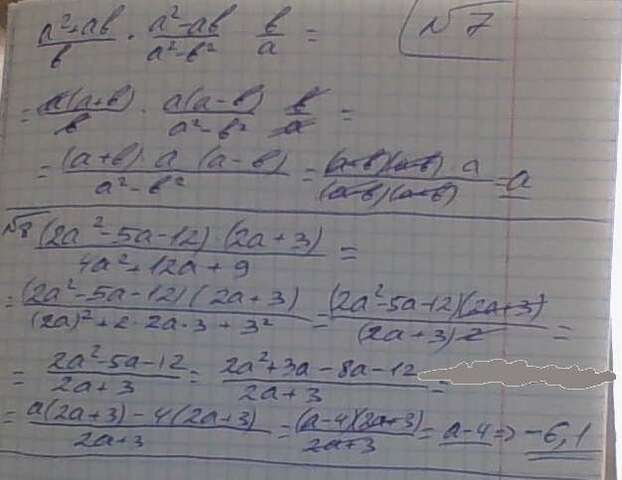 (a²+ab)/b · (a²-ab)/(a²-b²) b/a = √7
= a(a+b)/b · a(a-b)/(a²-b²) b/a =
= (a+b) a (a-b)/(a²-b²) = (a-b)(a+b)·a/((a-b)(a+b)) = a
√8 (2a²-5a-12)·(2a+3)/(4a²+12a+9) =
= (2a²-5a-12)(2a+3)/((2a)²+2·2a·3+3²) = (2a²-5a-12)(2a+3)/(2a+3)² =
= (2a²-5a-12)/(2a+3) = (2a²+3a-8a-12)/(2a+3) =
= (a(2a+3)-4(2a+3))/(2a+3) = (a-4)(2a+3)/(2a+3) = a-4 => -6,1